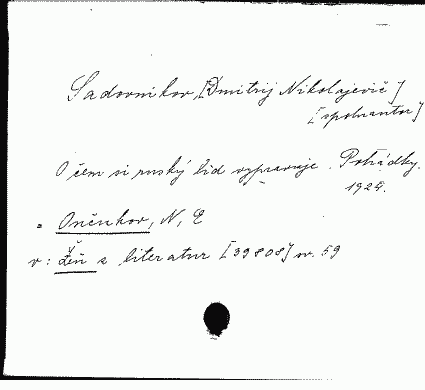 Sadovnikov, [Dmitrij Nikolajevič]
[spoluautor]
O čem si ruský lid vypravuje. Pohádky.
1924.
= Ončukov, N, E
v: Žeň z literatur [39808] sv. 59